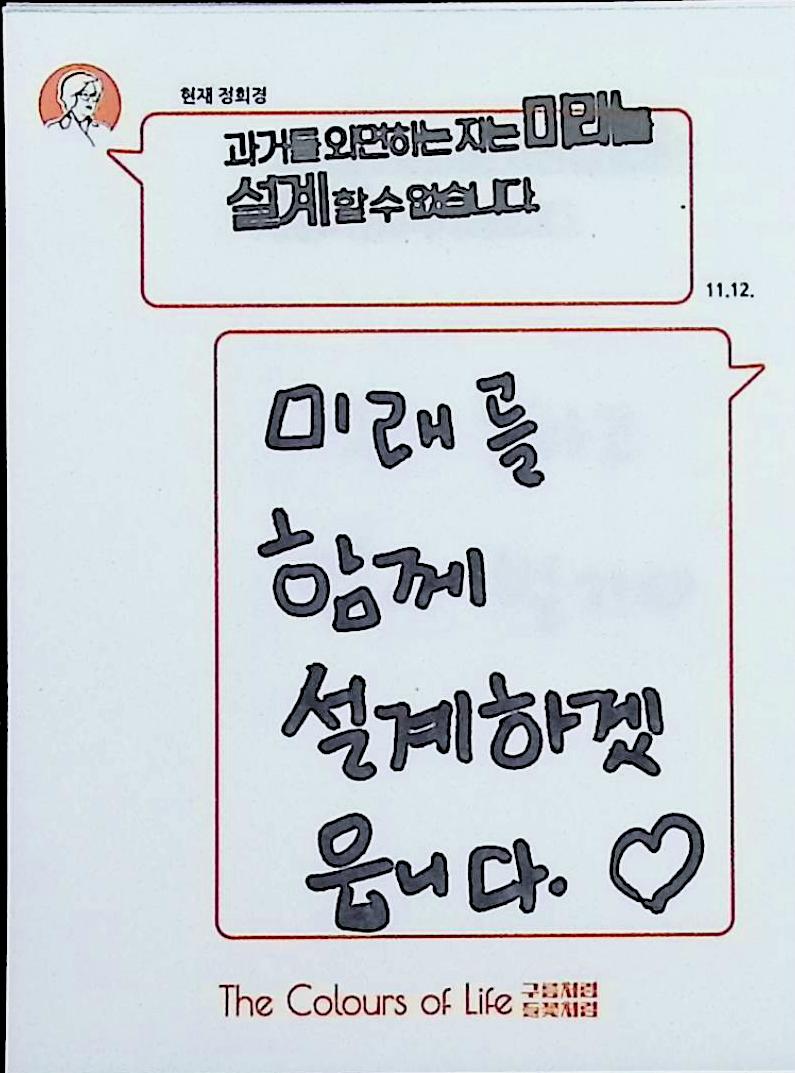 현재 정희경
과거를 외면하는 자는 미래를
설계할 수 없습니다.
11.12.
미래를
함께
설계하겠
읍니다. ♡
The Colours of Life 구름처럼
들꽃처럼